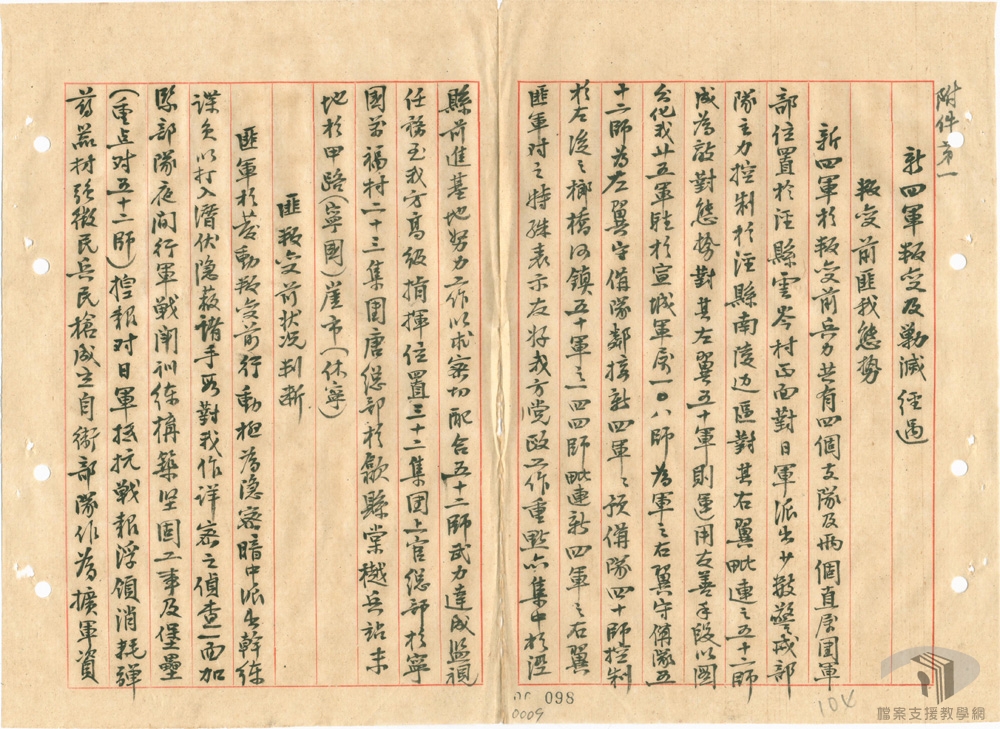 附件第一
新四軍叛变及勦滅經過
叛变前匪我態勢
新四軍於叛变前兵力共有四個支隊及兩個直屬團軍
部位置於涇縣雲岺村正面對日軍派出少数警戒部
隊主力控制於涇縣南陵边區對其右翼毗連之五十二師
成為敵對態勢對其左翼五十軍則運用友善手段以圖
分化我廿五軍駐於宣城軍屬一〇八師為軍之右翼守備隊五
十二師為左翼守備隊鄰接新四軍之預備隊四十師控制
於右後之榔橋河鎮五十軍之一四四師毗連新四軍之右翼
匪軍对之特殊表示友好我方党政工作重點亦集中於涇
縣前進基地努力工作以求密切配合五十二師武力達成監視
任務至我方高級指揮位置三十二集团上官総部於寧
國萬福村二十三集團唐総部於歙縣棠樾兵站末
地於甲路(寧國)崖市(休寧)
匪叛变前状况判断
匪軍於發動叛变前行動極為隐密暗中派出幹練
諜員以打入潛伏隐蔽諸手段對我作詳密之偵查一面加
緊部隊夜間行軍戰鬥訓练構築坚固工事及堡壘
(重点对五十二師)控報对日軍抵抗戦報浮領消耗弹
葯器材強徵民兵民槍成立自衛部隊作為擴軍資
00 098
0009
104
檔案支援教學網